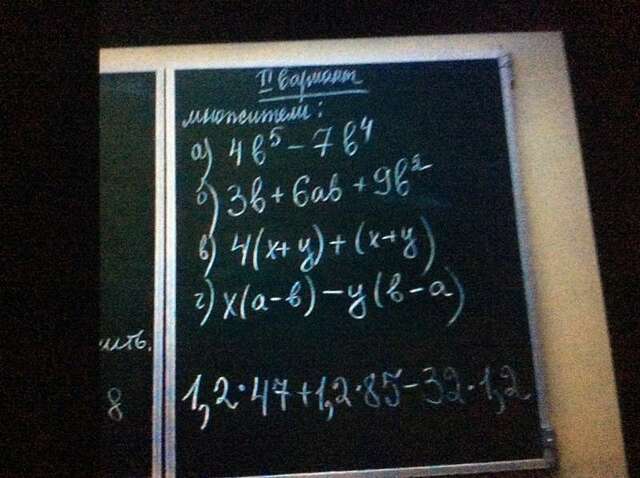 II вариант
множители:
а) 4b⁵ - 7b⁴
б) 3b + 6ab + 9b²
в) 4(x+y) + (x+y)
г) x(a-b) - y(b-a)
ить.
8
1,2·47+1,2·85-32·1,2